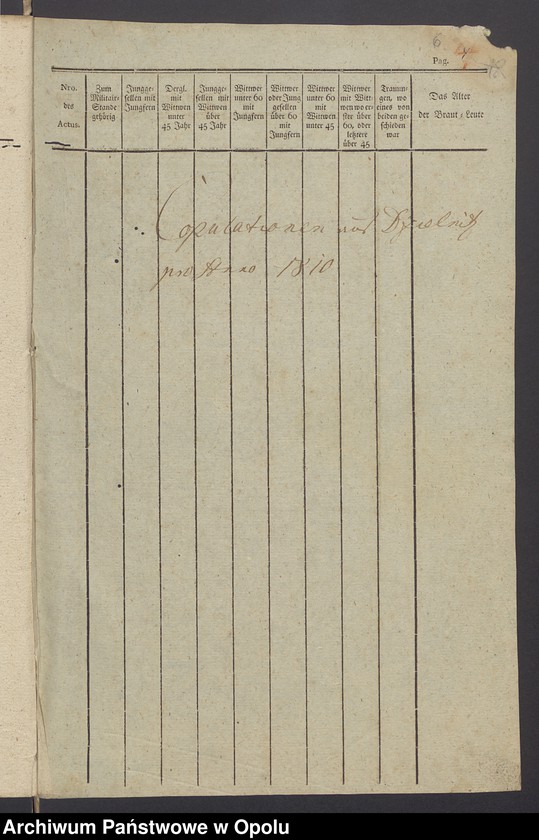 6
Pag.
Nro. des Actus.
Zum Militair-Stande gehörig
Jungge-sellen mit Jungfern
Dergl. mit Wittwen unter 45 Jahr
Jungge-sellen mit Wittwen über 45 Jahr
Wittwer unter 60 mit Jungfern
Wittwer oder Jung gesellen über 60 mit Jungfern
Wittwer unter 60 mit Wittwen unter 45
Wittwer mit Witt-wen wo er-stre über 60, oder letztere über 45
Traunun-gen, wo eines von beiden ge-schieden war
Das Alter der Braut-Leute
Copulationen
pro Anno 1810
Archiwum Państwowe w Opolu